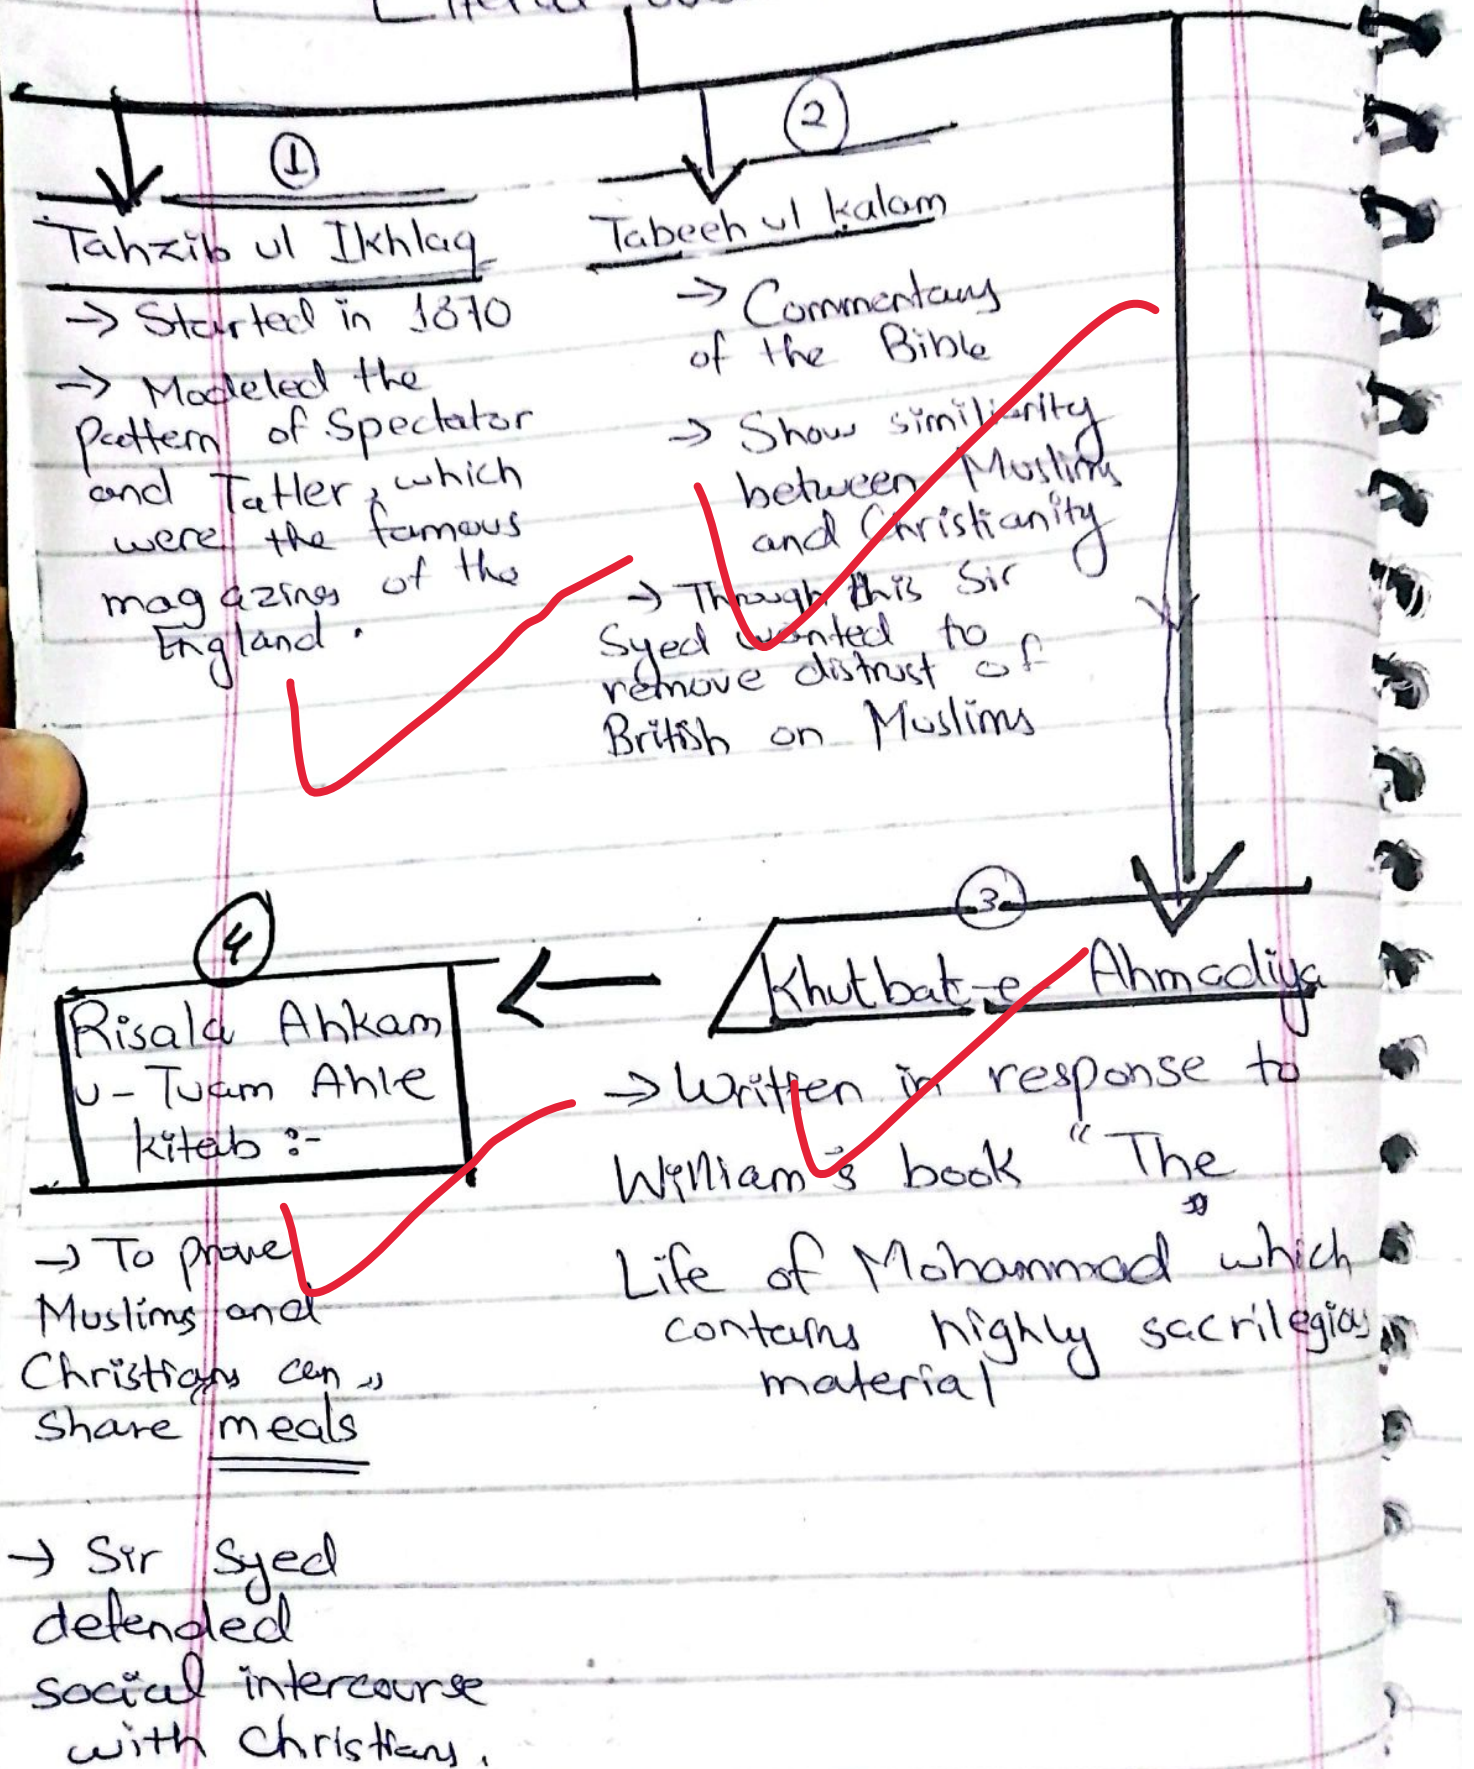 1
Tahzib ul Ikhlaq
→ Started in 1870
→ Modeled the
pattern of Spectator
and Tatler, which
were the famous
magazines of the
England.
2
Tabeeh ul kalam
→ Commentary
of the Bible
→ Show similiarity
between Muslims
and Christianity
→ Through this Sir
Syed wanted to
remove distrust of
British on Muslims
3
Khutbat-e-Ahmadiya
→ Written in response to
William's book "The
Life of Mohammad" which
contains highly sacrilegious
material
4
Risala Ahkam
u-Tuam Ahle
kitab :-
→ To prove
Muslims and
Christians can
share meals
→ Sir Syed
defended
social intercourse
with Christians.